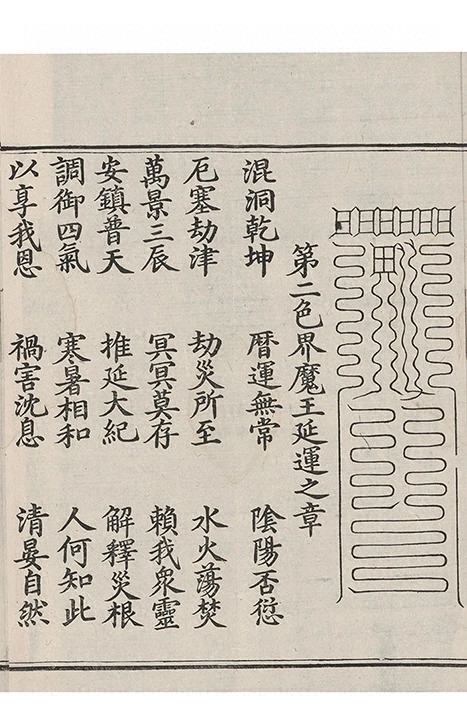 第二色界魔王延運之章
混洞乾坤 曆運無常 陰陽否愆
厄塞劫津 劫災所至 水火蕩焚
萬景三辰 冥冥莫存 賴我衆靈
安鎮普天 推延大紀 解釋災根
調御四氣 寒暑相和 人何知此
以享我恩 禍害沈息 清晏自然